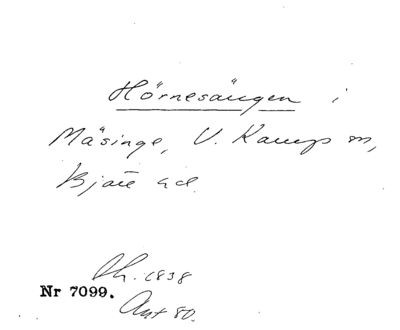 Hörnesängen i
Mäsinge, V. Karup sn,
Bjäre hd.
Lh. 1838
Nr 7099.
Ant 80.